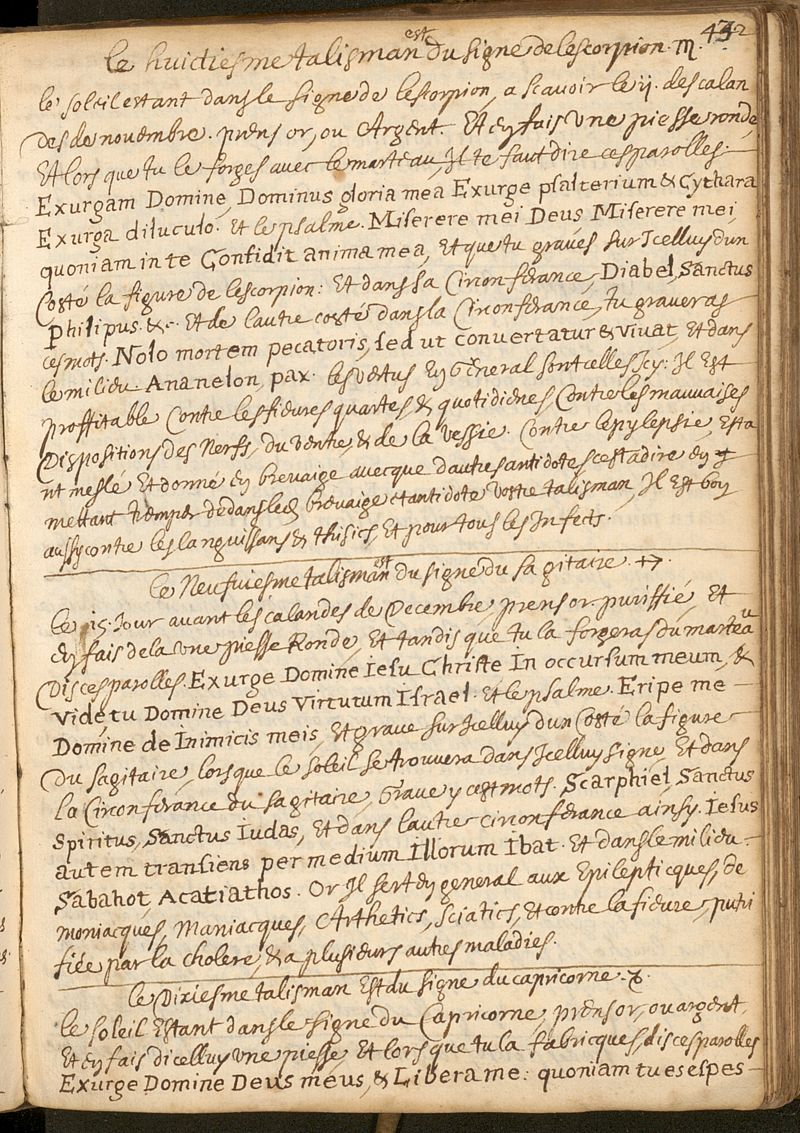 432
le huictiesme talisman est du signe de lescorpion. ♏.
le soleil estant dans le signe de lescorpion, a scavoir le ij. des calan
des de novembre. prens or, ou Argent. Et en fais une piesse ronde,
Et lors que tu le forges avec le marteau, Il te faut dire ces parolles.
Exurgam Domine, Dominus gloria mea Exurge psalterium & Cythara
Exurga diluculo. Et le psalme. Miserere mei Deus Miserere mei,
quoniam in te Confidit anima mea, Et que tu graves sur Icelluy dun
Costé la figure de lescorpion: Et dans sa Circonferance, Diabel, Sanctus
Philipus. &c. Et de lautre costé dans la Circonferance, tu graveras
ces mots. Nolo mortem pecatoris, sed ut convertatur & vivat, Et dans
le milieu Ananelon, pax. les vertus en General sont celles Icy: Il Est
proffitable Contre les fievres quartes & quotidienes, Contre les mauvaises
Dispositions des Nerfs, du Ventre, & de la vessie. Contre lepylepsie, Esta
nt meslé Et donné en brevaige avecque dautres antidotes cest a dire en
mettant tremper dedans le brevaige et antidote vostre talisman, Il Est bon
aussy contre les languissans & thisics, Et pour tous les Infects.
le Neufviesme talisman est du signe du sagitaire ♐.
le 15. Jour avant les calandes de Decembre, prens or puriffié, Et
En fais de la une piesse Ronde, Et tandis que tu la forgeras du marteau
Dis ces parolles. Exurge Domine Iesu Christe In occursum meum, &
Vide, tu Domine Deus Virtutum Israel. Et le psalme. Eripe me
Domine de Inimicis meis, Et grave sur Icelluy dun Costé la figure
Du sagitaire, lorsque le soleil se trouvera dans Icelluy signe, Et dans
la Circonferance du sagitaire, Grave y ces mots. Scarphiel, Sanctus
Spiritus, Sanctus Iudas, Et dans lautre circonferance ainsy. Iesus
autem transiens per medium Illorum Ibat. Et dans le milieu.
Sabahot, Acatiathos. Or Il sert en general aux Epilepticques, de
moniacques, Maniacques, Arthetics, Sciatics, Et contre la fievre, putri
fiée par la cholere, & a plusieurs autres maladies.
le Dixiesme talisman Est du signe du capricorne. ♑.
le soleil Estant dans le signe du Capricorne, prens or, ou argent,
Et en fais dicelluy une piesse, Et lors que tu la fabricques, dis ces parolles
Exurge Domine Deus meus, & Libera me: quoniam tu es espes